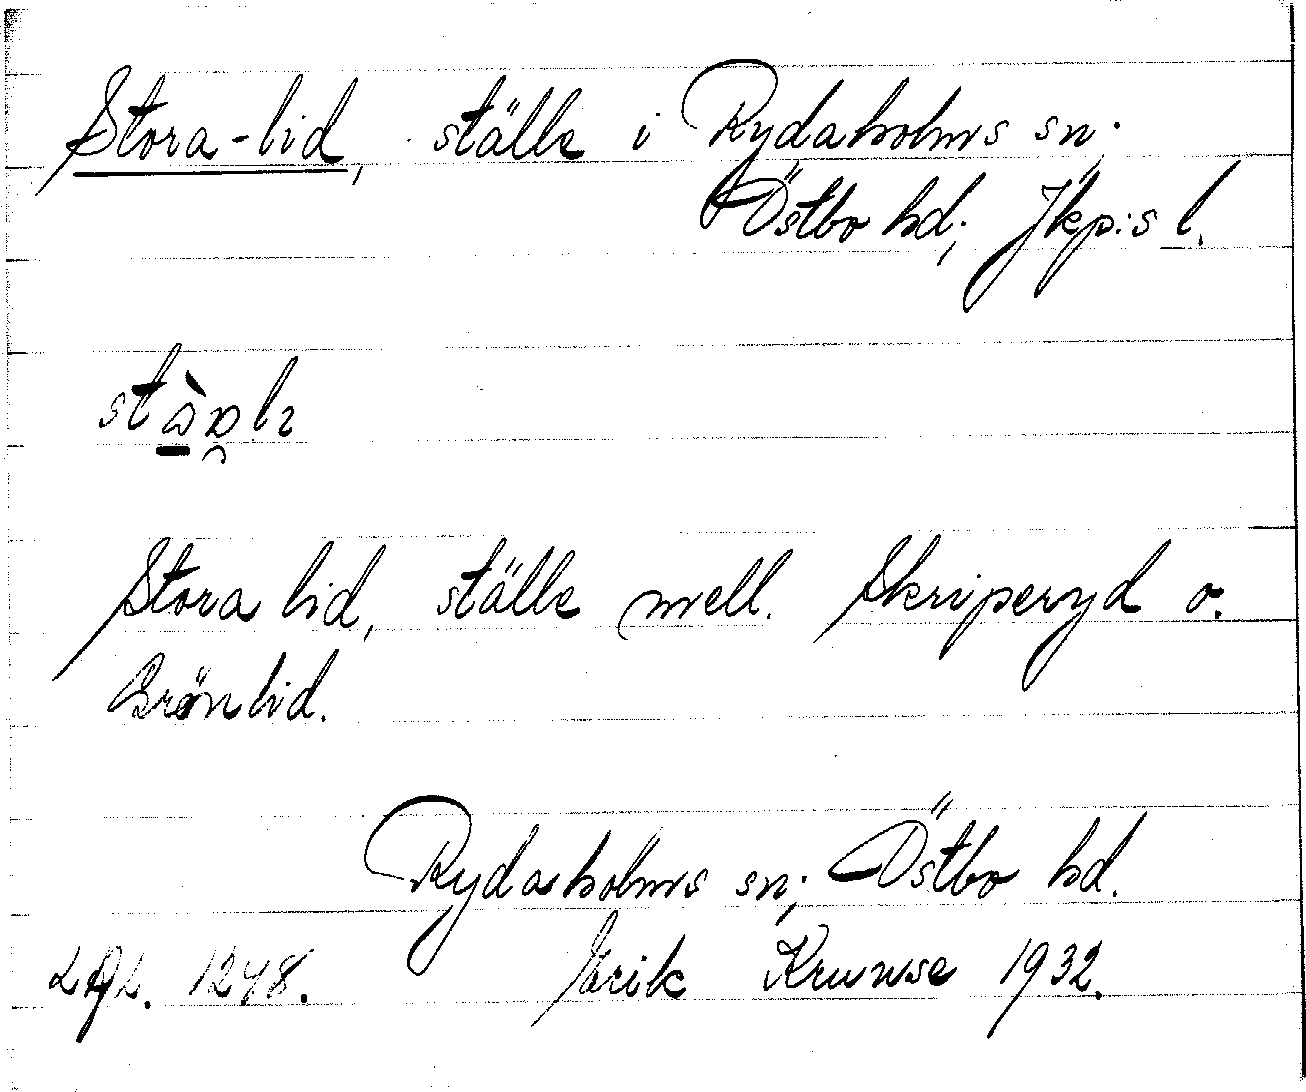 Stora-lid, ställe i Rydaholms sn.
Östbo hd; Jkp:s l.
Stora lid, ställe mell. Skriperyd o.
Grönlid.
Rydaholms sn; Östbo hd.
1248. Erik Kruuse 1932.